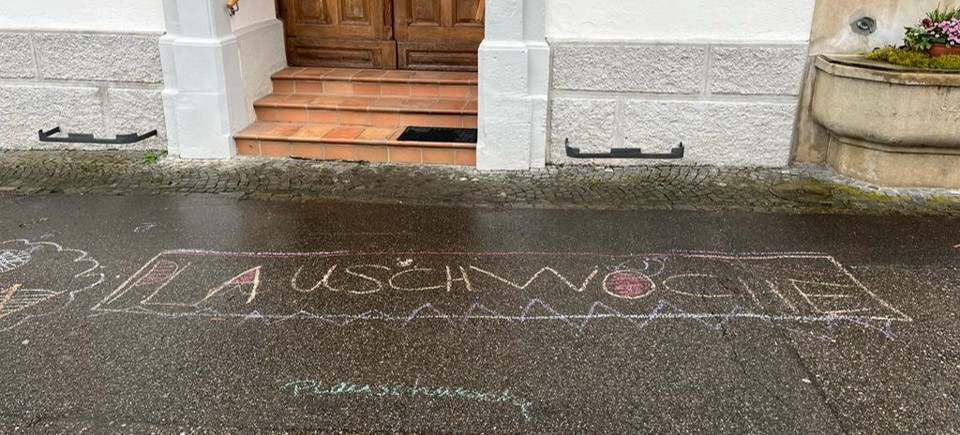 PLAUSCHWOCHE
Plauschwoche